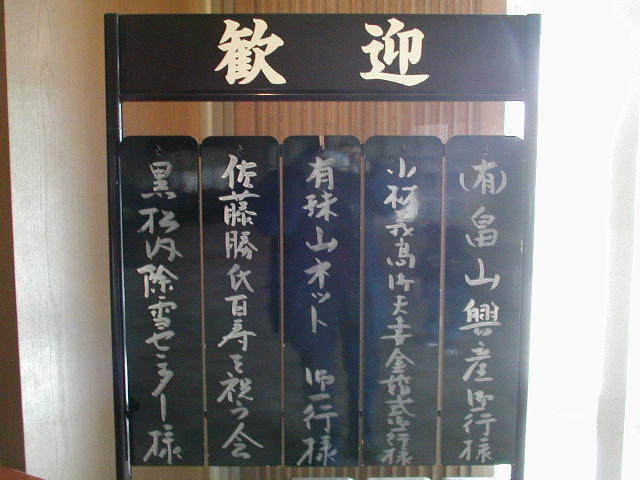 歓迎
(有)畠山興産御一行様
義高御夫妻金婚式御一行様
有珠山ネット 御一行様
佐藤勝氏百寿を祝う会
黒松内除雪センター様